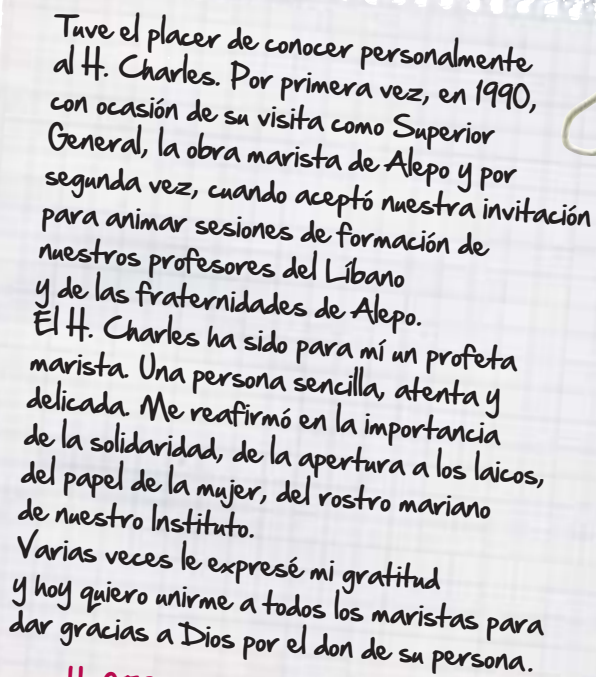 Tuve el placer de conocer personalmente
al H. Charles. Por primera vez, en 1990,
con ocasión de su visita como Superior
General, la obra marista de Alepo y por
segunda vez, cuando aceptó nuestra invitación
para animar sesiones de formación de
nuestros profesores del Líbano
y de las fraternidades de Alepo.
El H. Charles ha sido para mí un profeta
marista. Una persona sencilla, atenta y
delicada. Me reafirmó en la importancia
de la solidaridad, de la apertura a los laicos,
del papel de la mujer, del rostro mariano
de nuestro Instituto.
Varias veces le expresé mi gratitud
y hoy quiero unirme a todos los maristas para
dar gracias a Dios por el don de su persona.